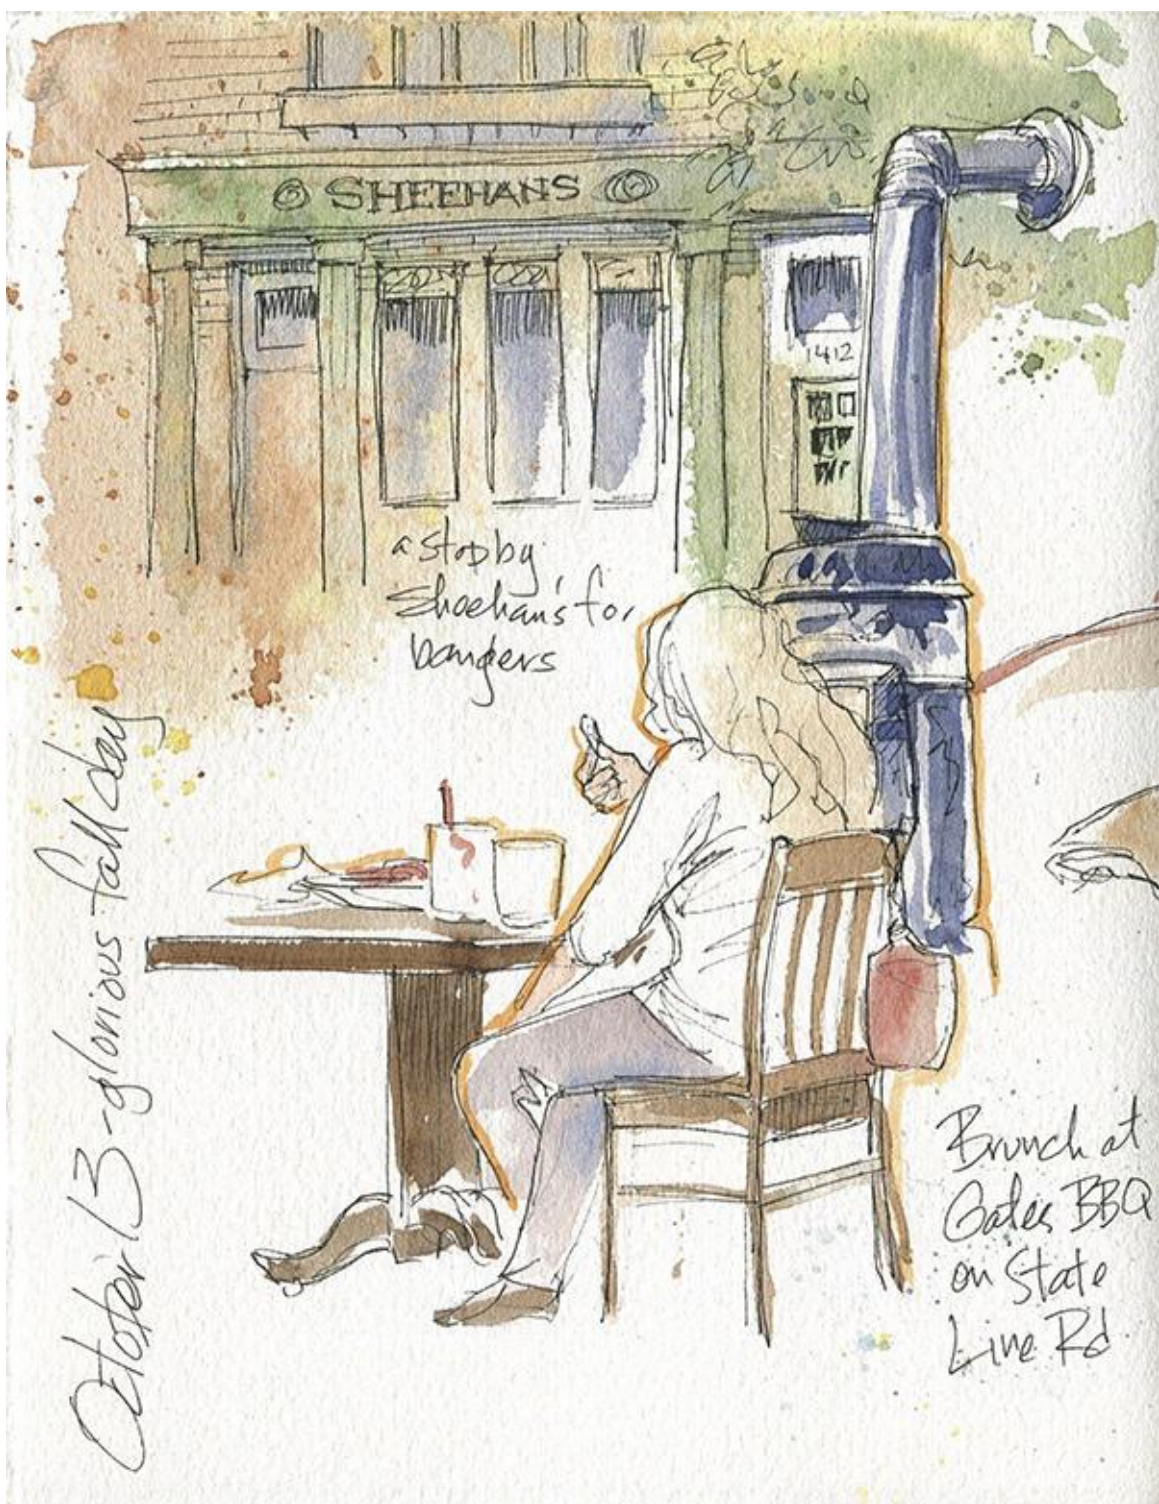 SHEEHANS
1412
a stop by
Sheehan's for
bangers
October 13 - glorious fall day
Brunch at
Gates BBQ
on State
Line Rd